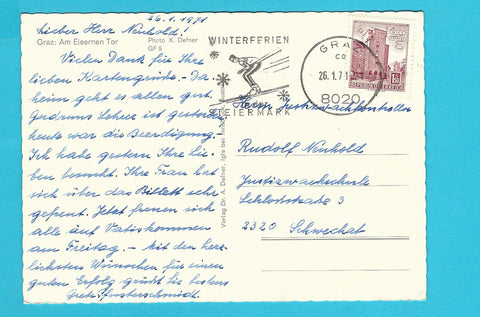 26.1.1971
Lieber Herr Neuhold!
Graz: Am Eisernen Tor
Photo K. Defner
GF 5
Vielen Dank für Ihre
lieben Kartengrüße. Da-
heim geht es allen gut
heute war die Beerdigung.
Ich habe gestern Ihre lie-
ben besucht. Ihre Frau hat
sich über das Billett sehr
gefreut. Jetzt freuen sich
alle auf Vatis kommen
am Freitag. – Mit den herz-
lichsten Wünschen für einen
guten Erfolg grüßt Sie bestens
Verlag Dr. A. Defner, Igls bei
WINTERFERIEN
STEIERMARK
GRAZ
26.1.71
8020
Herrn Justizwachkontrollor
Rudolf Neuhold
Justizwachschule
Schloßstraße 3
2320 Schwechat